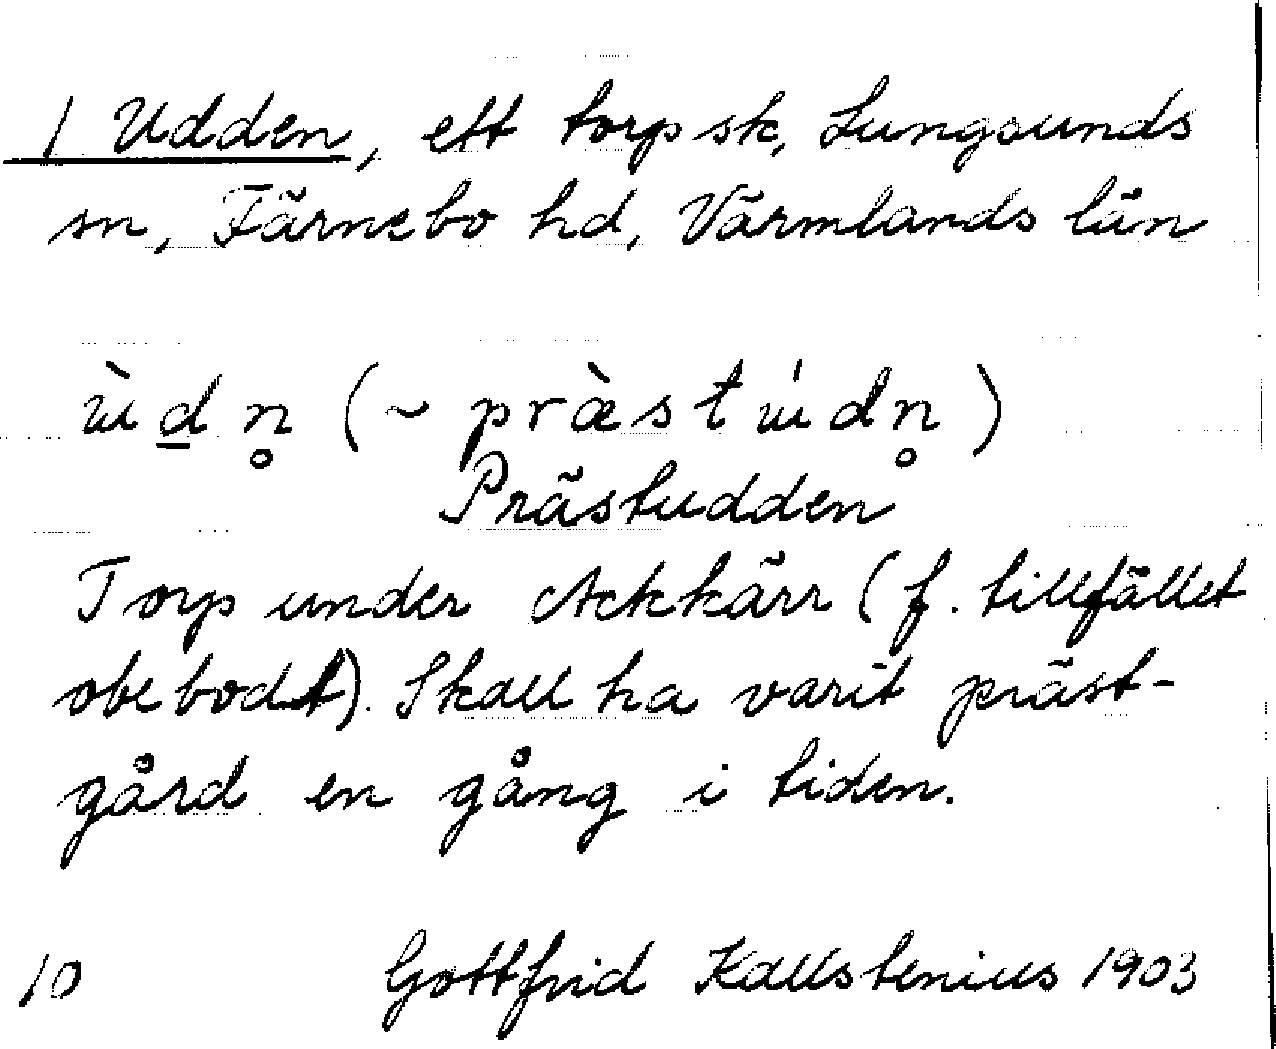 1 Udden, ett torpsk, Lungsunds
sn, Färnebo hd, Värmlands län
ùdn̥ (~ præ̀stúdn̥)
Prästudden
Torp under Ackkärr (f. tillfället
obebodt). Skall ha varit präst-
gård en gång i tiden.
10 Gottfrid Kallstenius 1903